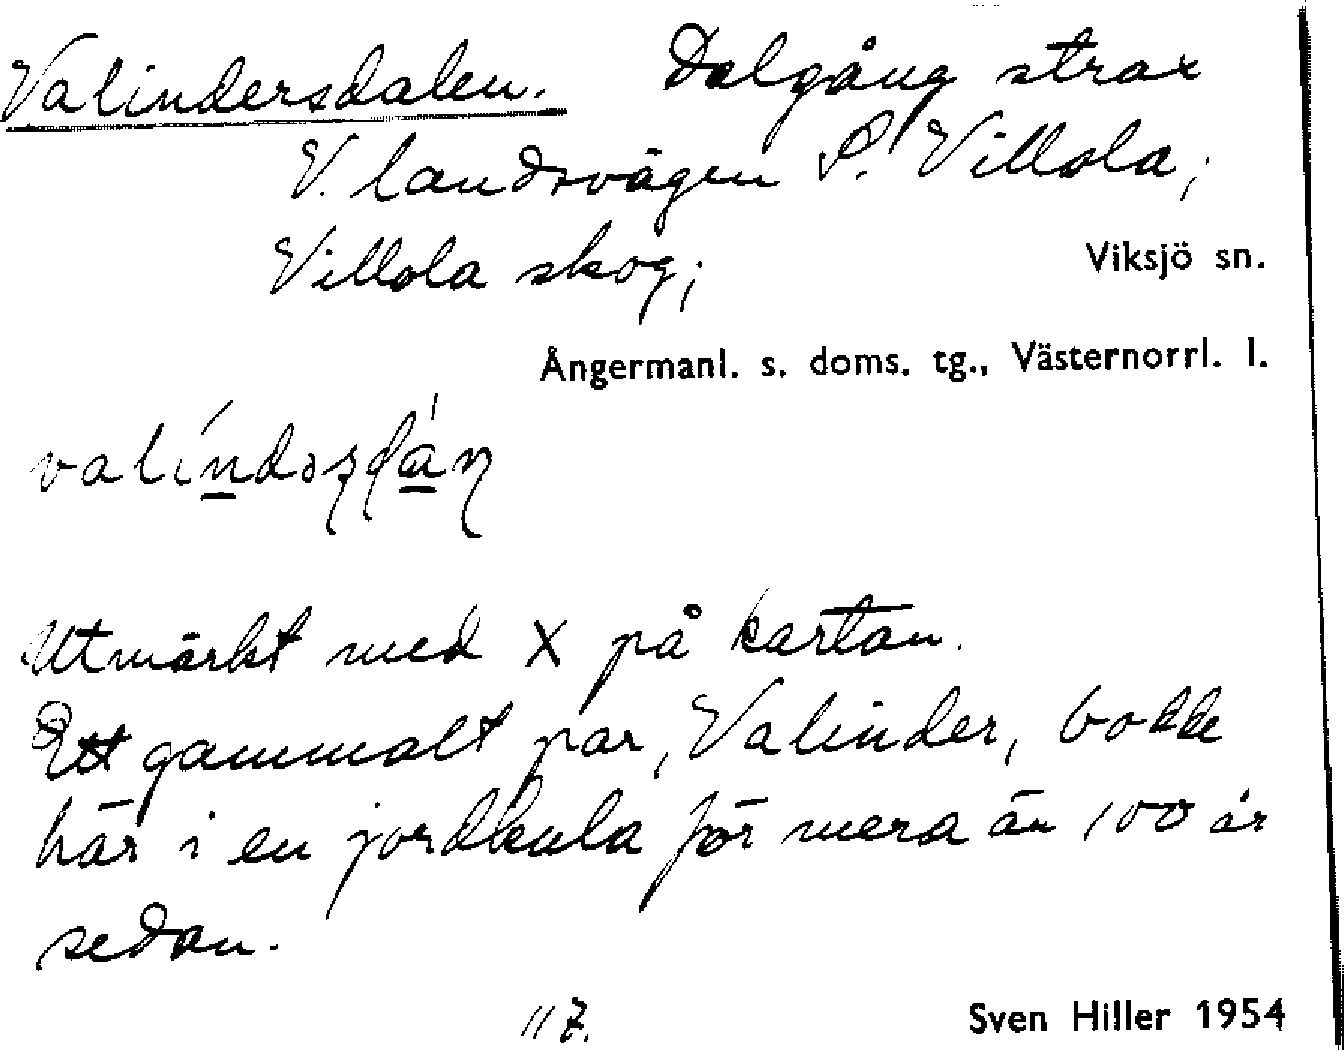 Valindersdalen. Dalgång strax
V. landsvägen S. Villola,
Villola skog;
Viksjö sn.
Ångermanl. s. doms. tg., Västernorrl. l.
Utmärkt med X på kartan.
Ett gammalt par, Valinder, bodde
här i en jordkula för mera än 100 år
sedan.
117.
Sven Hiller 1954